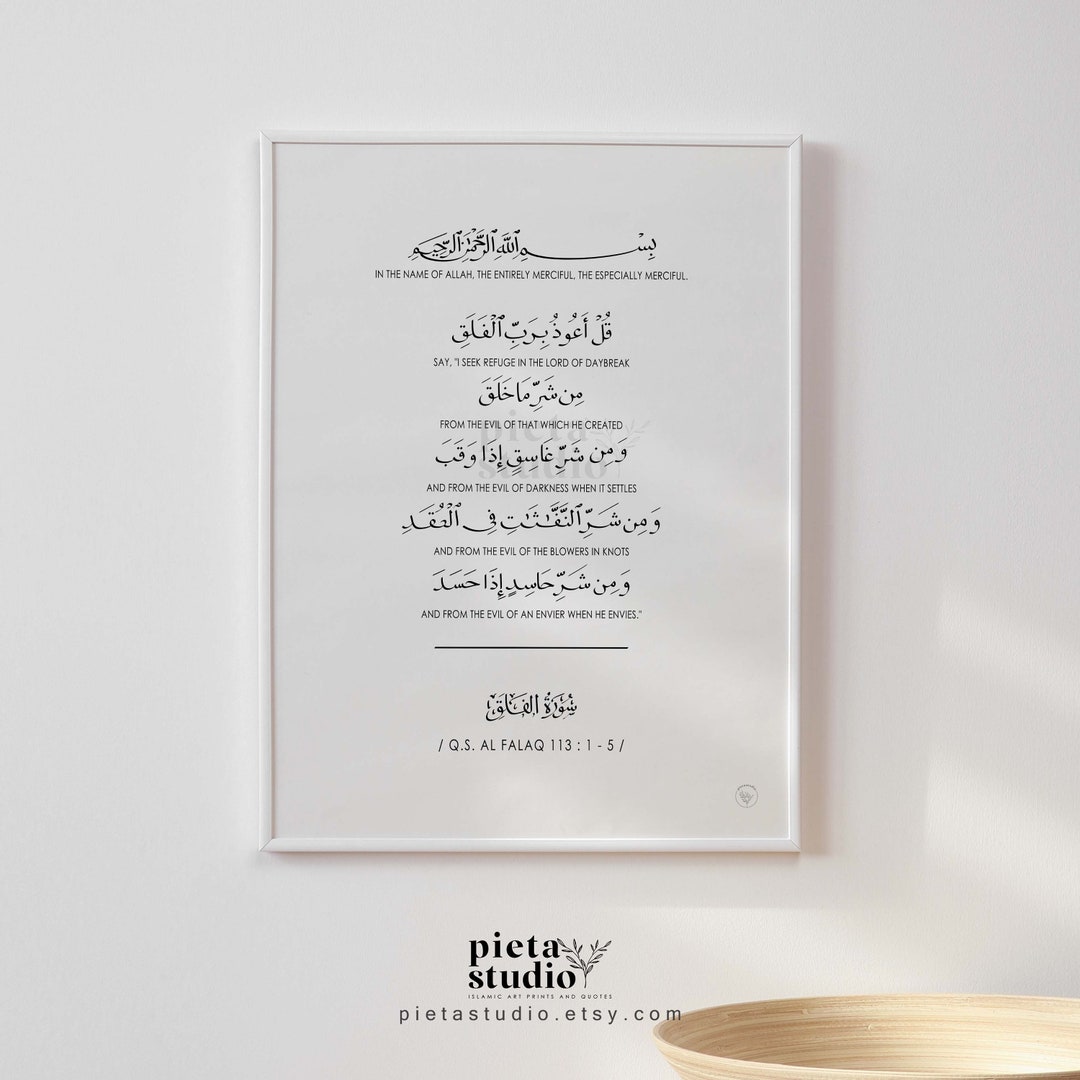 بِسْمِ ٱللَّهِ ٱلرَّحْمَٰنِ ٱلرَّحِيمِ
IN THE NAME OF ALLAH, THE ENTIRELY MERCIFUL, THE ESPECIALLY MERCIFUL.
قُلْ أَعُوذُ بِرَبِّ ٱلْفَلَقِ
SAY, "I SEEK REFUGE IN THE LORD OF DAYBREAK
مِن شَرِّ مَا خَلَقَ
FROM THE EVIL OF THAT WHICH HE CREATED
pieta
وَمِن شَرِّ غَاسِقٍ إِذَا وَقَبَ
studio
AND FROM THE EVIL OF DARKNESS WHEN IT SETTLES
وَمِن شَرِّ ٱلنَّفَّٰثَٰتِ فِى ٱلْعُقَدِ
AND FROM THE EVIL OF THE BLOWERS IN KNOTS
وَمِن شَرِّ حَاسِدٍ إِذَا حَسَدَ
AND FROM THE EVIL OF AN ENVIER WHEN HE ENVIES."
سُورَةُ الفَلَقِ
/ Q.S. AL FALAQ 113 : 1 - 5 /
pieta
studio
ISLAMIC ART PRINTS AND QUOTES
pietastudio.etsy.com